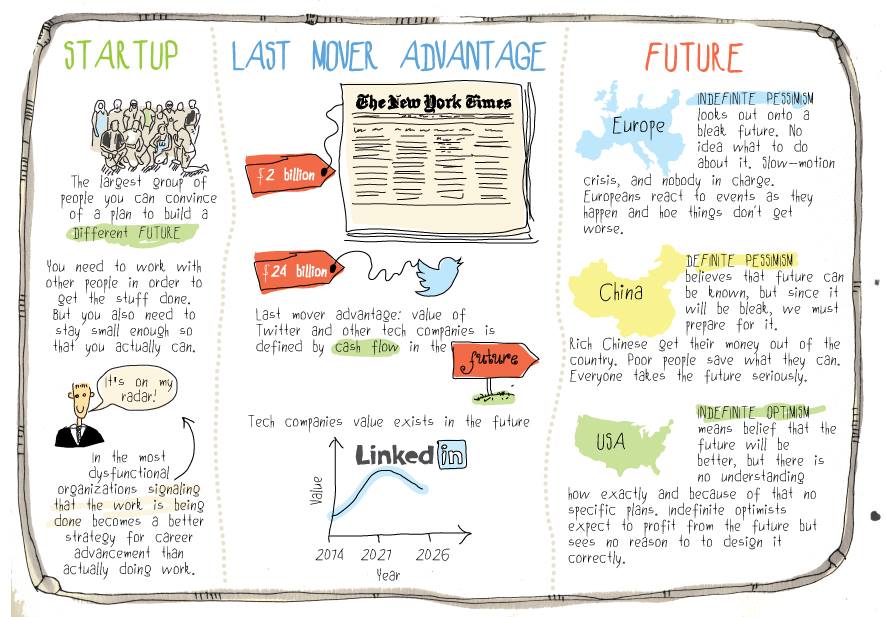 STARTUP
The largest group of
people you can convince
of a plan to build a
Different FUTURE
You need to work with
other people in order to
get the stuff done.
But you also need to
stay small enough so
that you actually can.
It's on my
radar!
In the most
dysfunctional
organizations signaling
that the work is being
done becomes a better
strategy for career
advancement than
actually doing work.
LAST MOVER ADVANTAGE
The New York Times
$2 billion
$24 billion
Last mover advantage: value of
Twitter and other tech companies is
defined by cash flow in the
future
Tech companies value exists in the future
Linked in
Value
2014 2021 2026
Year
FUTURE
Europe
INDEFINITE PESSIMISM
looks out onto a
bleak future. No
idea what to do
about it. Slow-motion
crisis, and nobody in charge.
Europeans react to events as they
happen and hoe things don't get
worse.
China
DEFINITE PESSIMISM
believes that future can
be known, but since it
will be bleak, we must
prepare for it.
Rich Chinese get their money out of the
country. Poor people save what they can.
Everyone takes the future seriously.
USA
INDEFINITE OPTIMISM
means belief that the
future will be
better, but there is
no understanding
how exactly and because of that no
specific plans. Indefinite optimists
expect to profit from the future but
sees no reason to to design it
correctly.